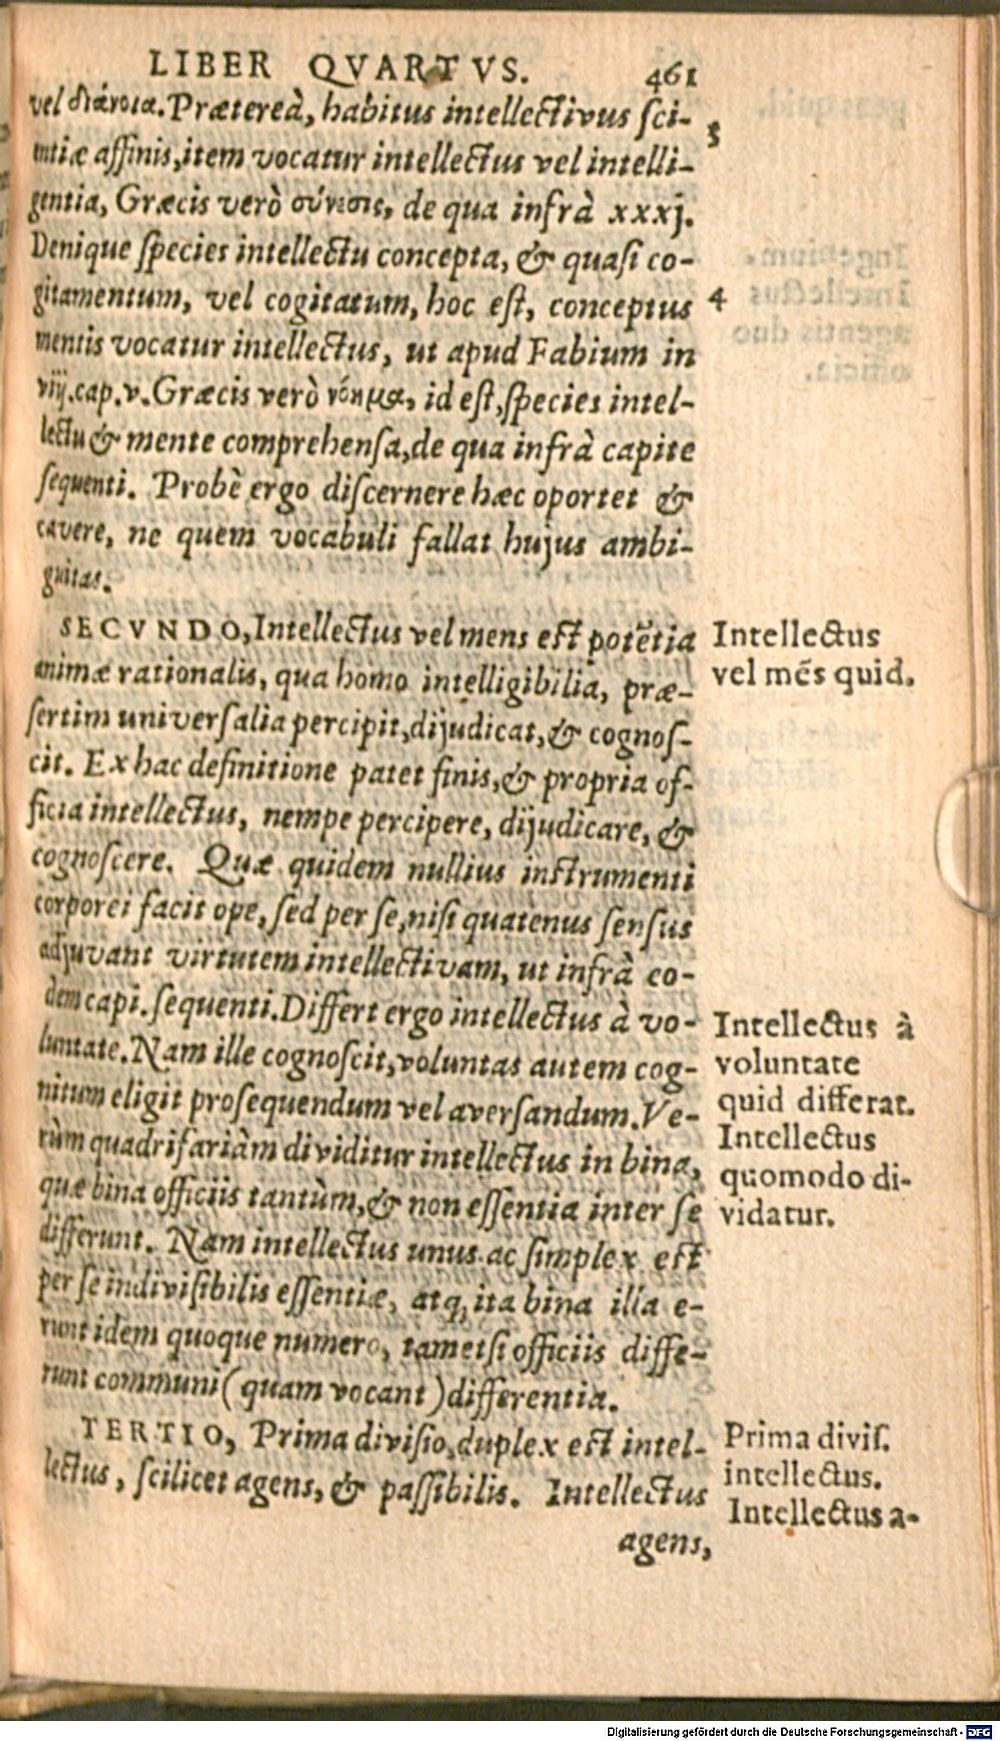 LIBER QVARTVS. 461
vel διάνοια. Prætereà, habitus intellectivus ſci-
entiæ affinis, item vocatur intellectus vel intelli- 3
gentia, Græcis verò σύνεσις, de qua infrà xxxj.
Denique ſpecies intellectu concepta, & quaſi co-
gitamentum, vel cogitatum, hoc eſt, conceptus 4
mentis vocatur intellectus, ut apud Fabium in
viij. cap. v. Græcis verò νόημα, id eſt, ſpecies intel-
lectu & mente comprehenſa, de qua infrà capite
ſequenti. Probè ergo diſcernere hæc oportet &
cavere, ne quem vocabuli fallat hujus ambi-
guitas.
SECVNDO, Intellectus vel mens eſt potẽtia
animæ rationalis, qua homo intelligibilia, præ-
ſertim univerſalia percipit, dijudicat, & cognoſ-
cit. Ex hac definitione patet finis, & propria of-
ficia intellectus, nempe percipere, dijudicare, &
cognoſcere. Quæ quidem nullius inſtrumenti
corporei facit ope, ſed per ſe, niſi quatenus ſenſus
adjuvant virtutem intellectivam, ut infrà eo-
dem capi. ſequenti. Differt ergo intellectus à vo-
luntate. Nam ille cognoſcit, voluntas autem cog-
nitum eligit proſequendum vel averſandum. Ve-
rùm quadrifariàm dividitur intellectus in bina,
quæ bina officiis tantùm, & non eſſentia inter ſe
differunt. Nam intellectus unus ac ſimplex eſt
per ſe indiviſibilis eſſentiæ, atq; ita bina illa e-
runt idem quoque numero, tametſi officiis diffe-
runt communi (quam vocant) differentia.
TERTIO, Prima diviſio, duplex eſt intel-
lectus, ſcilicet agens, & paſſibilis. Intellectus
agens,
Intellectus
vel mẽs quid.
Intellectus à
voluntate
quid differat.
Intellectus
quomodo di-
vidatur.
Prima diviſ.
intellectus.
Intellectus a-
Digitalisierung gefördert durch die Deutsche Forschungsgemeinschaft - DFG